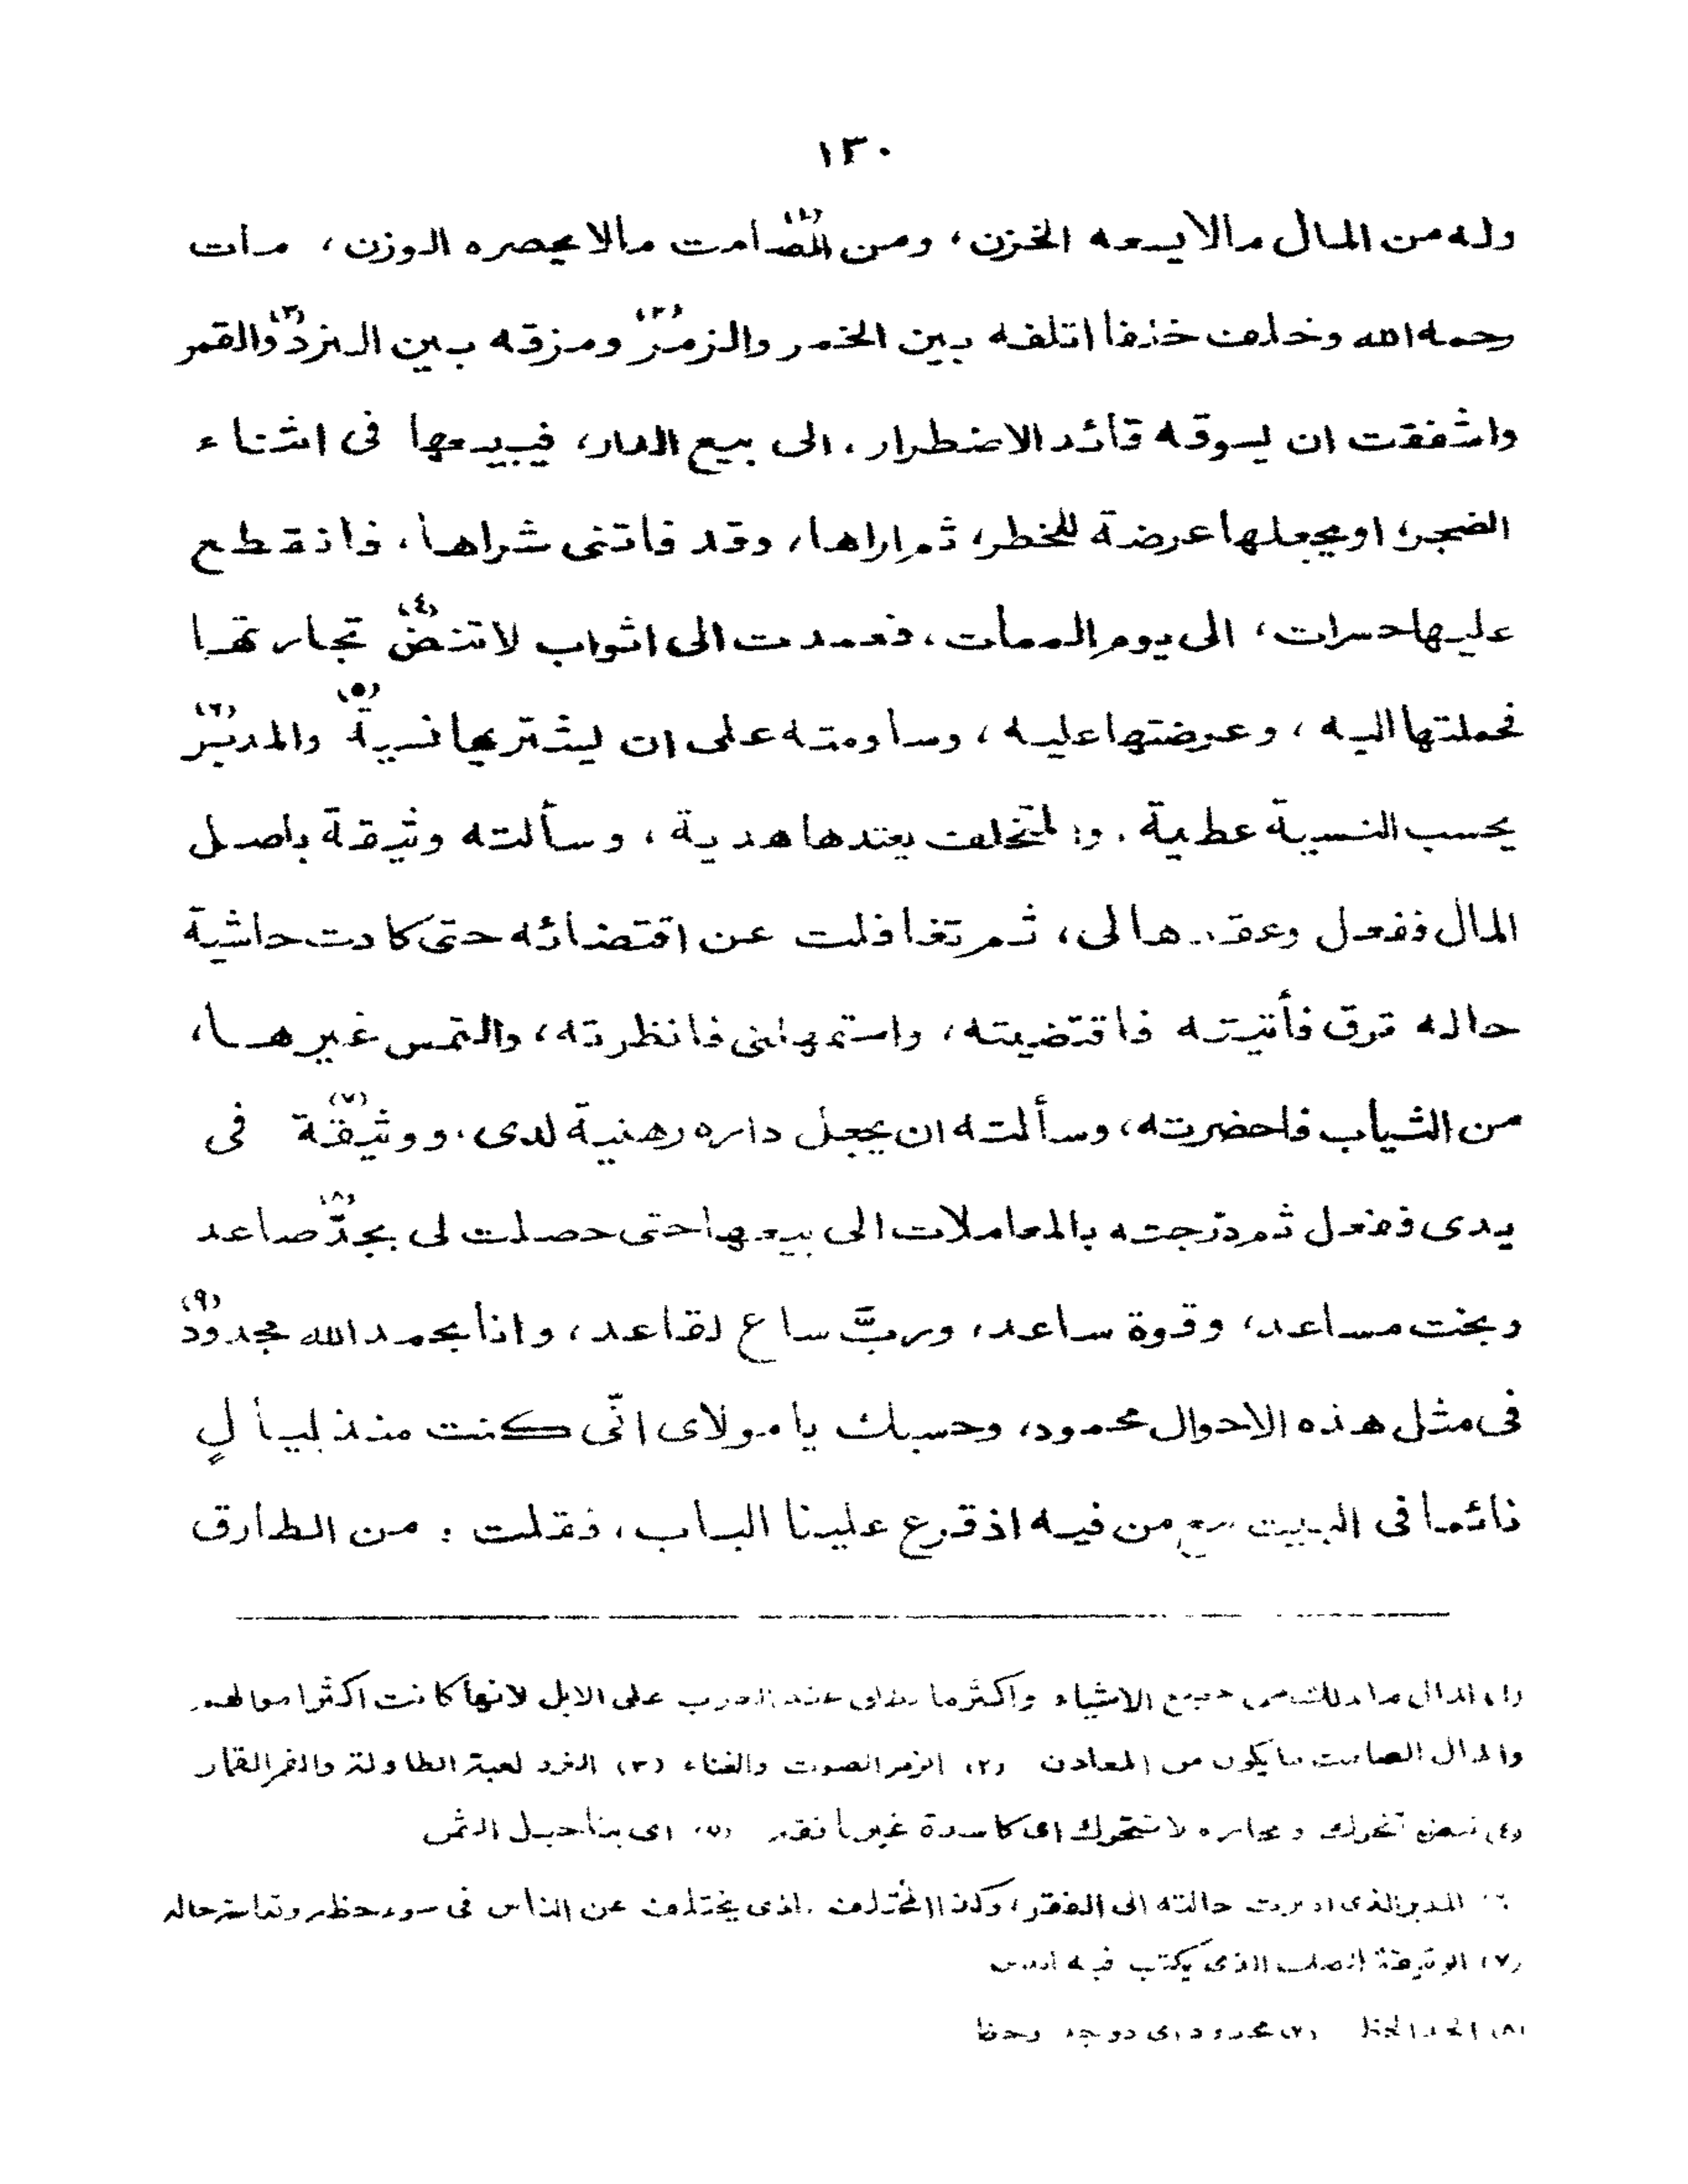 ١٣٠
وله من المال مالا يسعه الخزن، ومن الصامت(١) مالا يحصره الوزن، مات
رحمه الله وخلف خلفا اتلفه بين الخمر والزمر(٢) ومزقه بين النرد(٣) والقمر
واشفقت ان يسوقه قائد الاضطرار، الى بيع الدار، فيبيعها فى اثناء
الضجر، او يجعلها عرضة للخطر، ثم اراها، وقد فاتنى شراها، فانقطع
عليها حسرات، الى يوم الممات، فعمدت الى اثواب لا تنض(٤) تجارتها
فحملتها اليه، وعرضتها عليه، وساومته على ان يشتريها نسية(٥) والمدبر(٦)
يحسب النسية عطية. والمتخلف يعتدها هدية، وسألته وثيقة باصل
المال ففعل وعقدها لى، ثم تغافلت عن اقتضائه حتى كادت حاشية
حاله ترق فأتيته فاقتضيته، واستمهلنى فانظرته، والتمس غيرها،
من الثياب فاحضرته، وسألته ان يجعل داره رهنية لدى، ووثيقة(٧) فى
يدى ففعل ثم درجته بالمعاملات الى بيعها حتى حصلت لى بجدّ(٨) صاعد
وبخت مساعد، وقوة ساعد، وربَّ ساع لقاعد، وانا بحمد الله مجدود(٩)
فى مثل هذه الاحوال محمود، وحسبك يا مولاى انّى كنت منذ ليالٍ
نائما فى البيت مع من فيه اذ قرع علينا الباب، فقلت : من الطارق
(١) المال ما ملك من جميع الاشياء واكثر ما يطلق عند العرب على الابل لانها كانت اكثر اموالهم
والمال الصامت ما يكون من المعادن (٢) الزمر الصوت والغناء (٣) النرد لعبة الطاولة والقمر القمار
(٤) تنض تتحرك و تجارة لا تتحرك اى كاسدة غير نافقة (٥) اى بتأجيل الثمن
(٦) المدبر الذى ادبرت حالته الى الفقر، وكذا المتخلف الذى يختلف عن الناس فى سوء حظه وتعاسة حاله
(٧) الوثيقة الصك الذى يكتب فيه الدين
(٨) الجد الحظ (٧) مجدود اى ذو جد وحظ